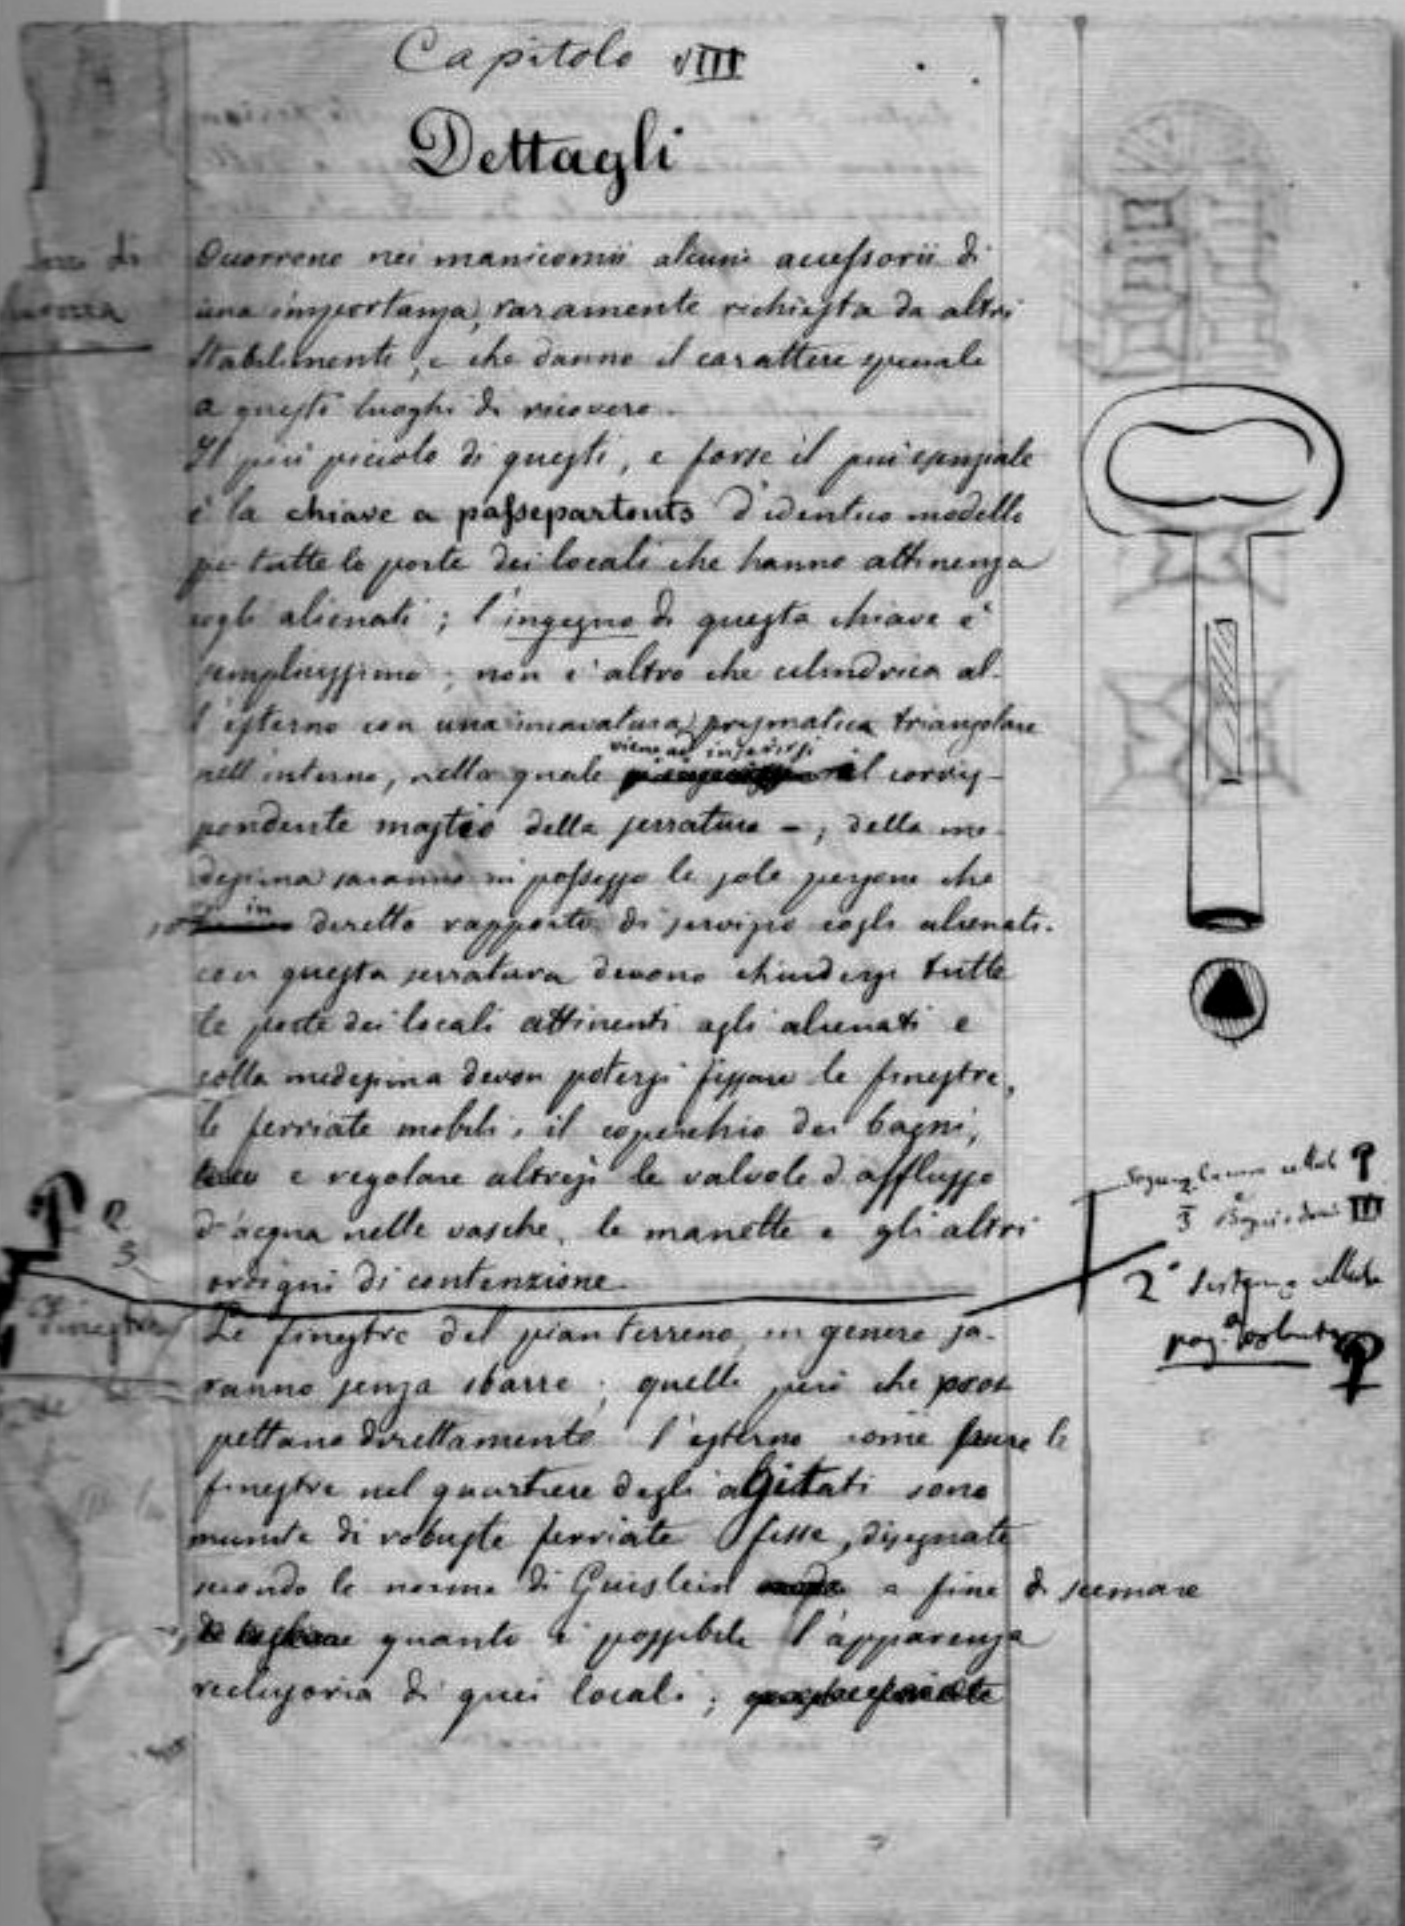 Capitolo VIII
Dettagli
Occorrono nei manicomii alcuni accessorii di
una importanza, raramente richiesta da altri
stabilimenti, e che danno il carattere speciale
a questi luoghi di ricovero.
Il più piccolo di questi, e forse il più essenziale
è la chiave a passepartouts d'identico modello
per tutte le porte dei locali che hanno attinenza
cogli alienati; l'ingegno di questa chiave è
semplicissimo; non è altro che cilindrica al-
l'esterno con una incavatura prismatica triangolare
viene ad inserirsi
nell'interno, nella quale il corris-
pondente mastio della serratura -; della me-
desima saranno in possesso le sole persone che
in
diretto rapporto di servizio cogli alienati.
con questa serratura devono chiudersi tutte
le porte dei locali attinenti agli alienati e
colla medesima devon potersi fissare le finestre,
le ferriate mobili, il coperchio dei bagni,
e regolare altresì le valvole d'afflusso
d'acqua nelle vasche, le manette e gli altri
ordigni di contenzione.
2
3
2°
pag.
Finestre
Le finestre del pian terreno in genere sa-
ranno senza sbarre; quelle però che pros
pettano direttamente l'esterno come pure le
finestre nel quartiere degli agitati sono
munite di robuste ferriate fisse, disegnate
secondo le norme di Guislein a fine di scemare
quanto è possibile l'apparenza
reclusoria di quei locali;